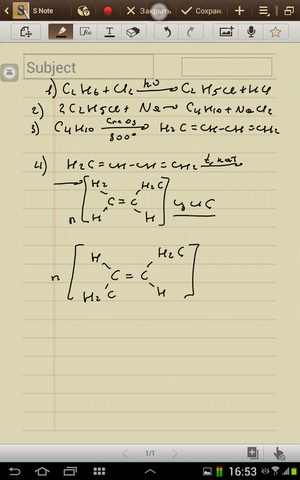 S Note
Закрыть
Сохран.
Subject
1) C₂H₆ + Cl₂ hν→ C₂H₅Cl + HCl
2) 2C₂H₅Cl + Na → C₄H₁₀ + NaCl₂
3) C₄H₁₀ Cr₂O₃→ 800° H₂C = CH-CH = CH₂
4) H₂C = CH-CH = CH₂ t, кат→
→ [H₂ H₂C
C = C
H H] цис
n
[H H₂C
n C = C
H₂C H]
1/1
16:53